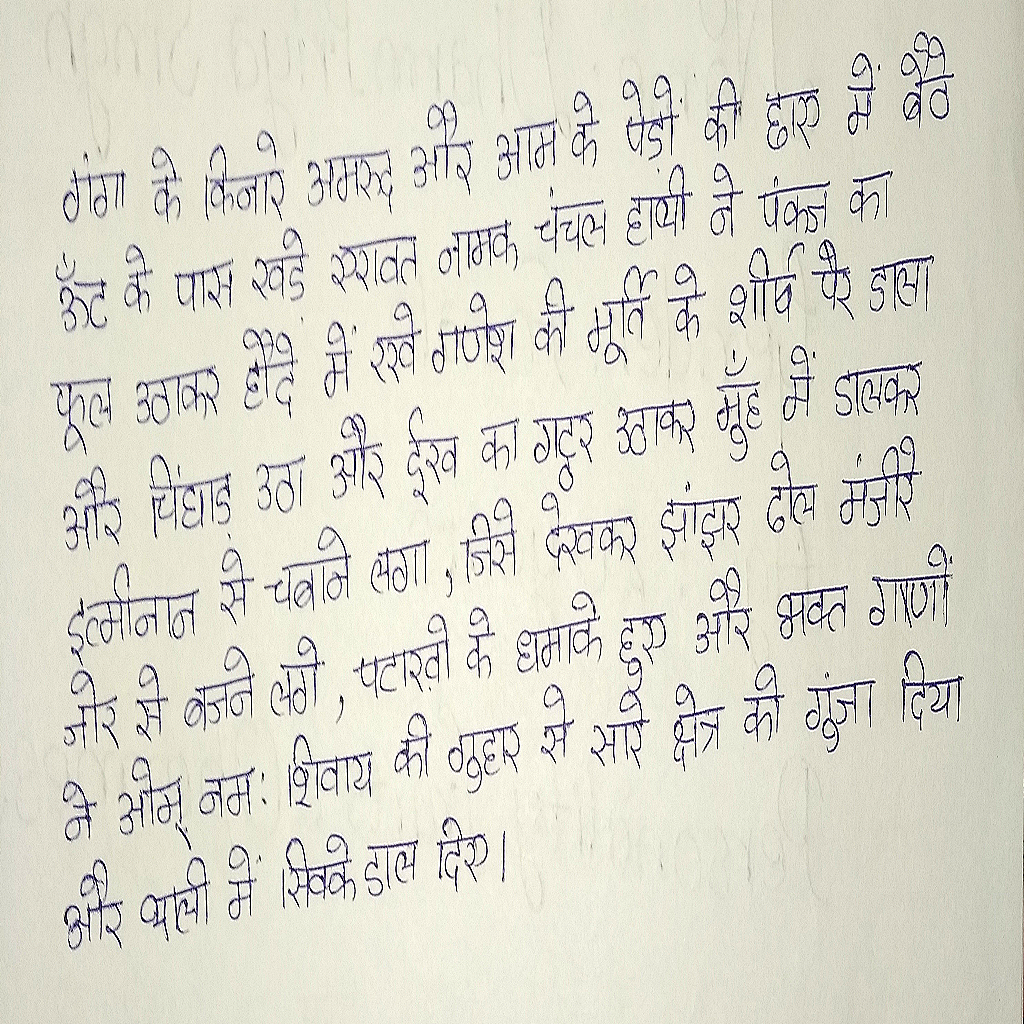 गंगा के किनारे अमरुद और आम के पेड़ों की छाए में बैठे
ऊँट के पास खड़े एरावत नामक चंचल हाथी ने पंकज का
फूल उठाकर हौदे में रखे गणेश की मूर्ति के शीर्ष पैर डाला
और चिंघाड़ उठा और ईख का गट्ठर उठाकर मुँह में डालकर
इत्मीनान से चबाने लगा, जिसे देखकर झांझर ढोल मंजीरे
जोर से बजने लगे, पटाखो के धमाके हुए और भक्त गाणों
ने ओम् नमः शिवाय की गुहार से सारे क्षेत्र को गुंजा दिया
और थाली में सिक्के डाल दिए।